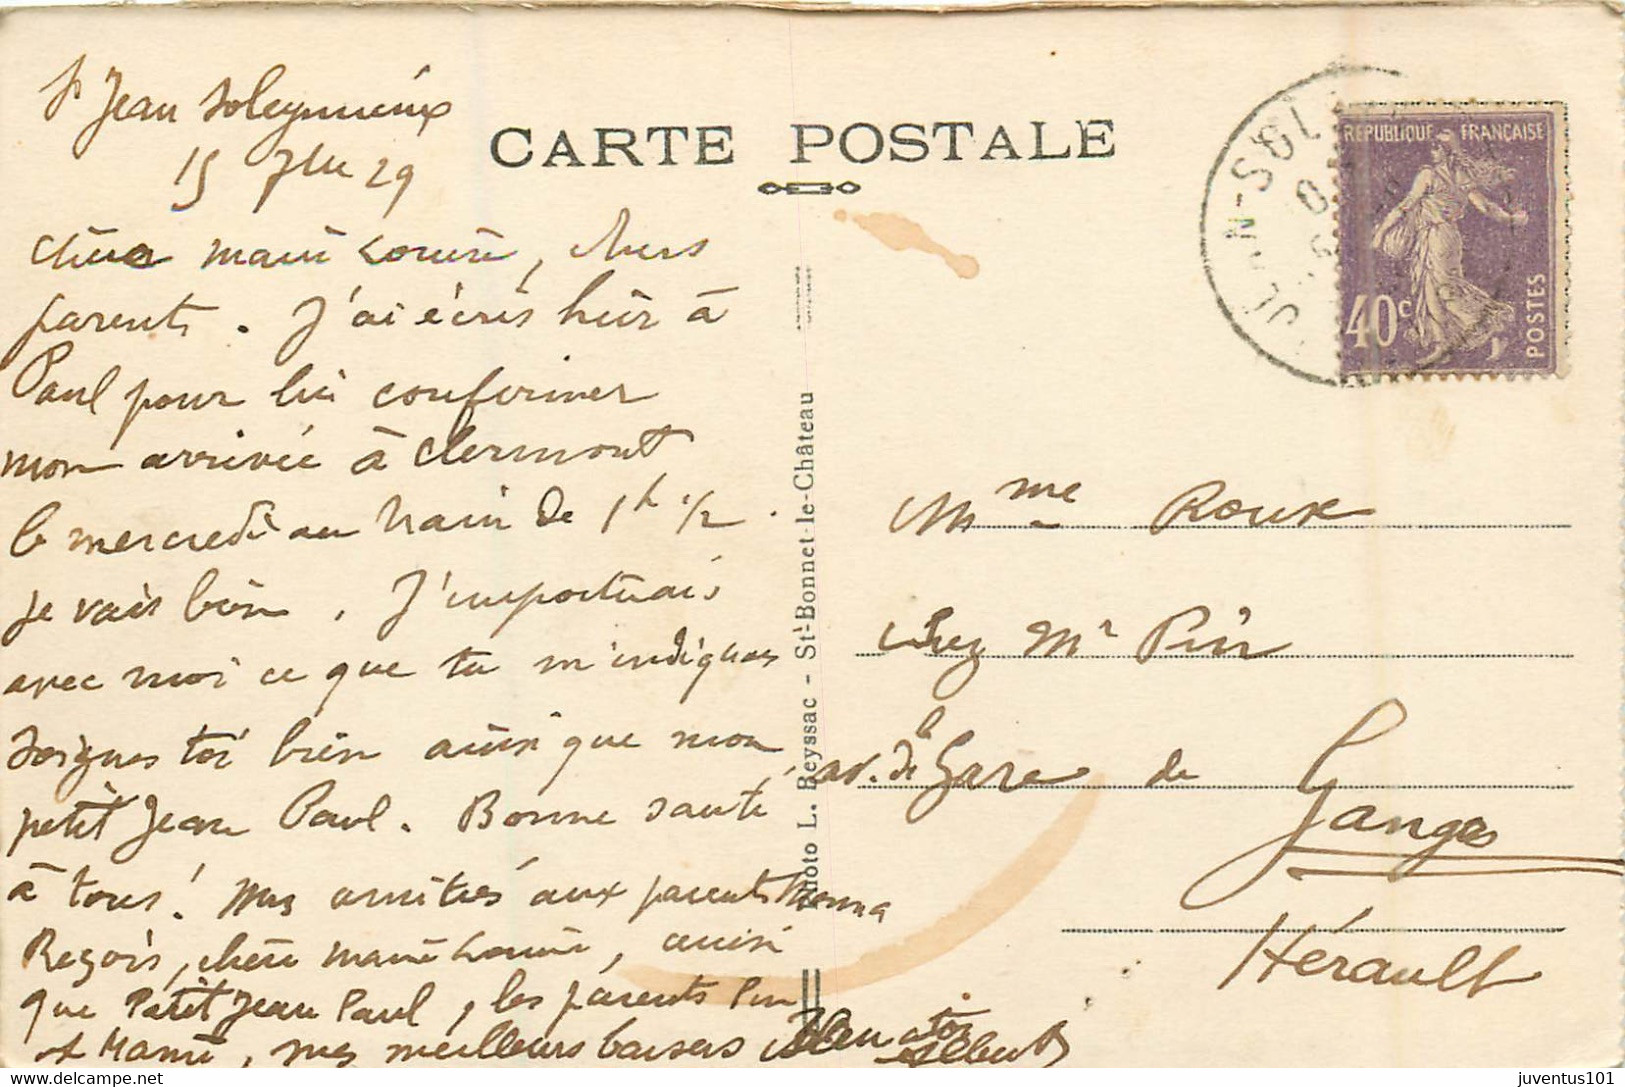 St Jean Soleymieux
15 7bre 29
CARTE POSTALE
Chère Marie Louise, chers
parents. J'ai écris hier à
Paul pour lui confirmer
mon arrivée à Clermont
le mercredi au train de 1h 1/2.
je vais bien. J'importerais
avec moi ce que tu m'indiques
soignes toi bien ainsi que mon
petit Jean Paul. Bonne santé
à tous! Mes amitiés aux parents
Reçois, chère Marie Louise, ainsi
que Petit Jean Paul, les parents Pin
et Mamé, mes meilleurs baisers
Albert
Photo L. Beyssac - St-Bonnet-le-Château
JEAN-SOL
REPUBLIQUE FRANÇAISE
40c
POSTES
Mme Roux
chez Mr Pin
av. de la Gare de
Ganges
Hérault
juventus101